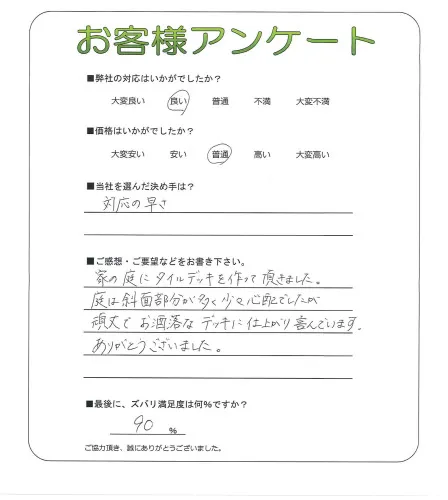 お客様アンケート
■弊社の対応はいかがでしたか？
大変良い 良い 普通 不満 大変不満
■価格はいかがでしたか？
大変安い 安い 普通 高い 大変高い
■当社を選んだ決め手は？
対応の早さ
■ご感想・ご要望などをお書き下さい。
家の庭にタイルデッキを作って頂きました。
庭は斜面部分が多く少々心配でしたが
頑丈でお洒落なデッキに仕上がり喜んでいます。
ありがとうございました。
■最後に、ズバリ満足度は何%ですか？
90 %
ご協力頂き、誠にありがとうございました。